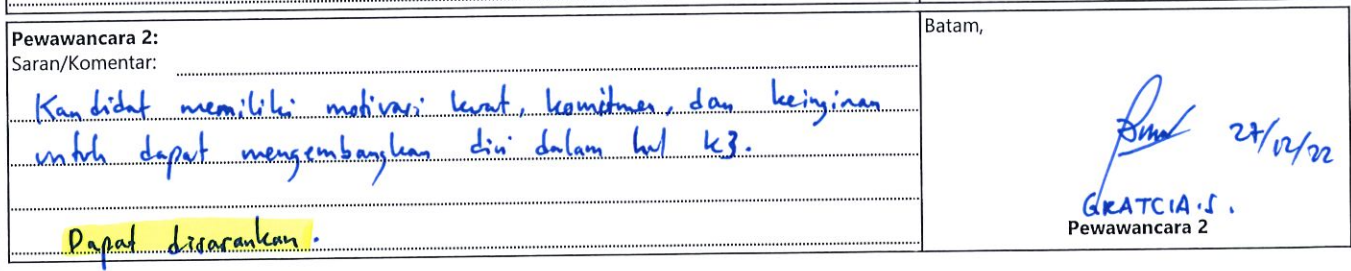 Pewawancara 2:
Saran/Komentar:
Kandidat memiliki motivasi kuat, komitmen, dan keinginan
untuk dapat mengembangkan diri dalam hal k3.
Dapat disarankan.
Batam,
27/12/22
GRATCIA.S.
Pewawancara 2